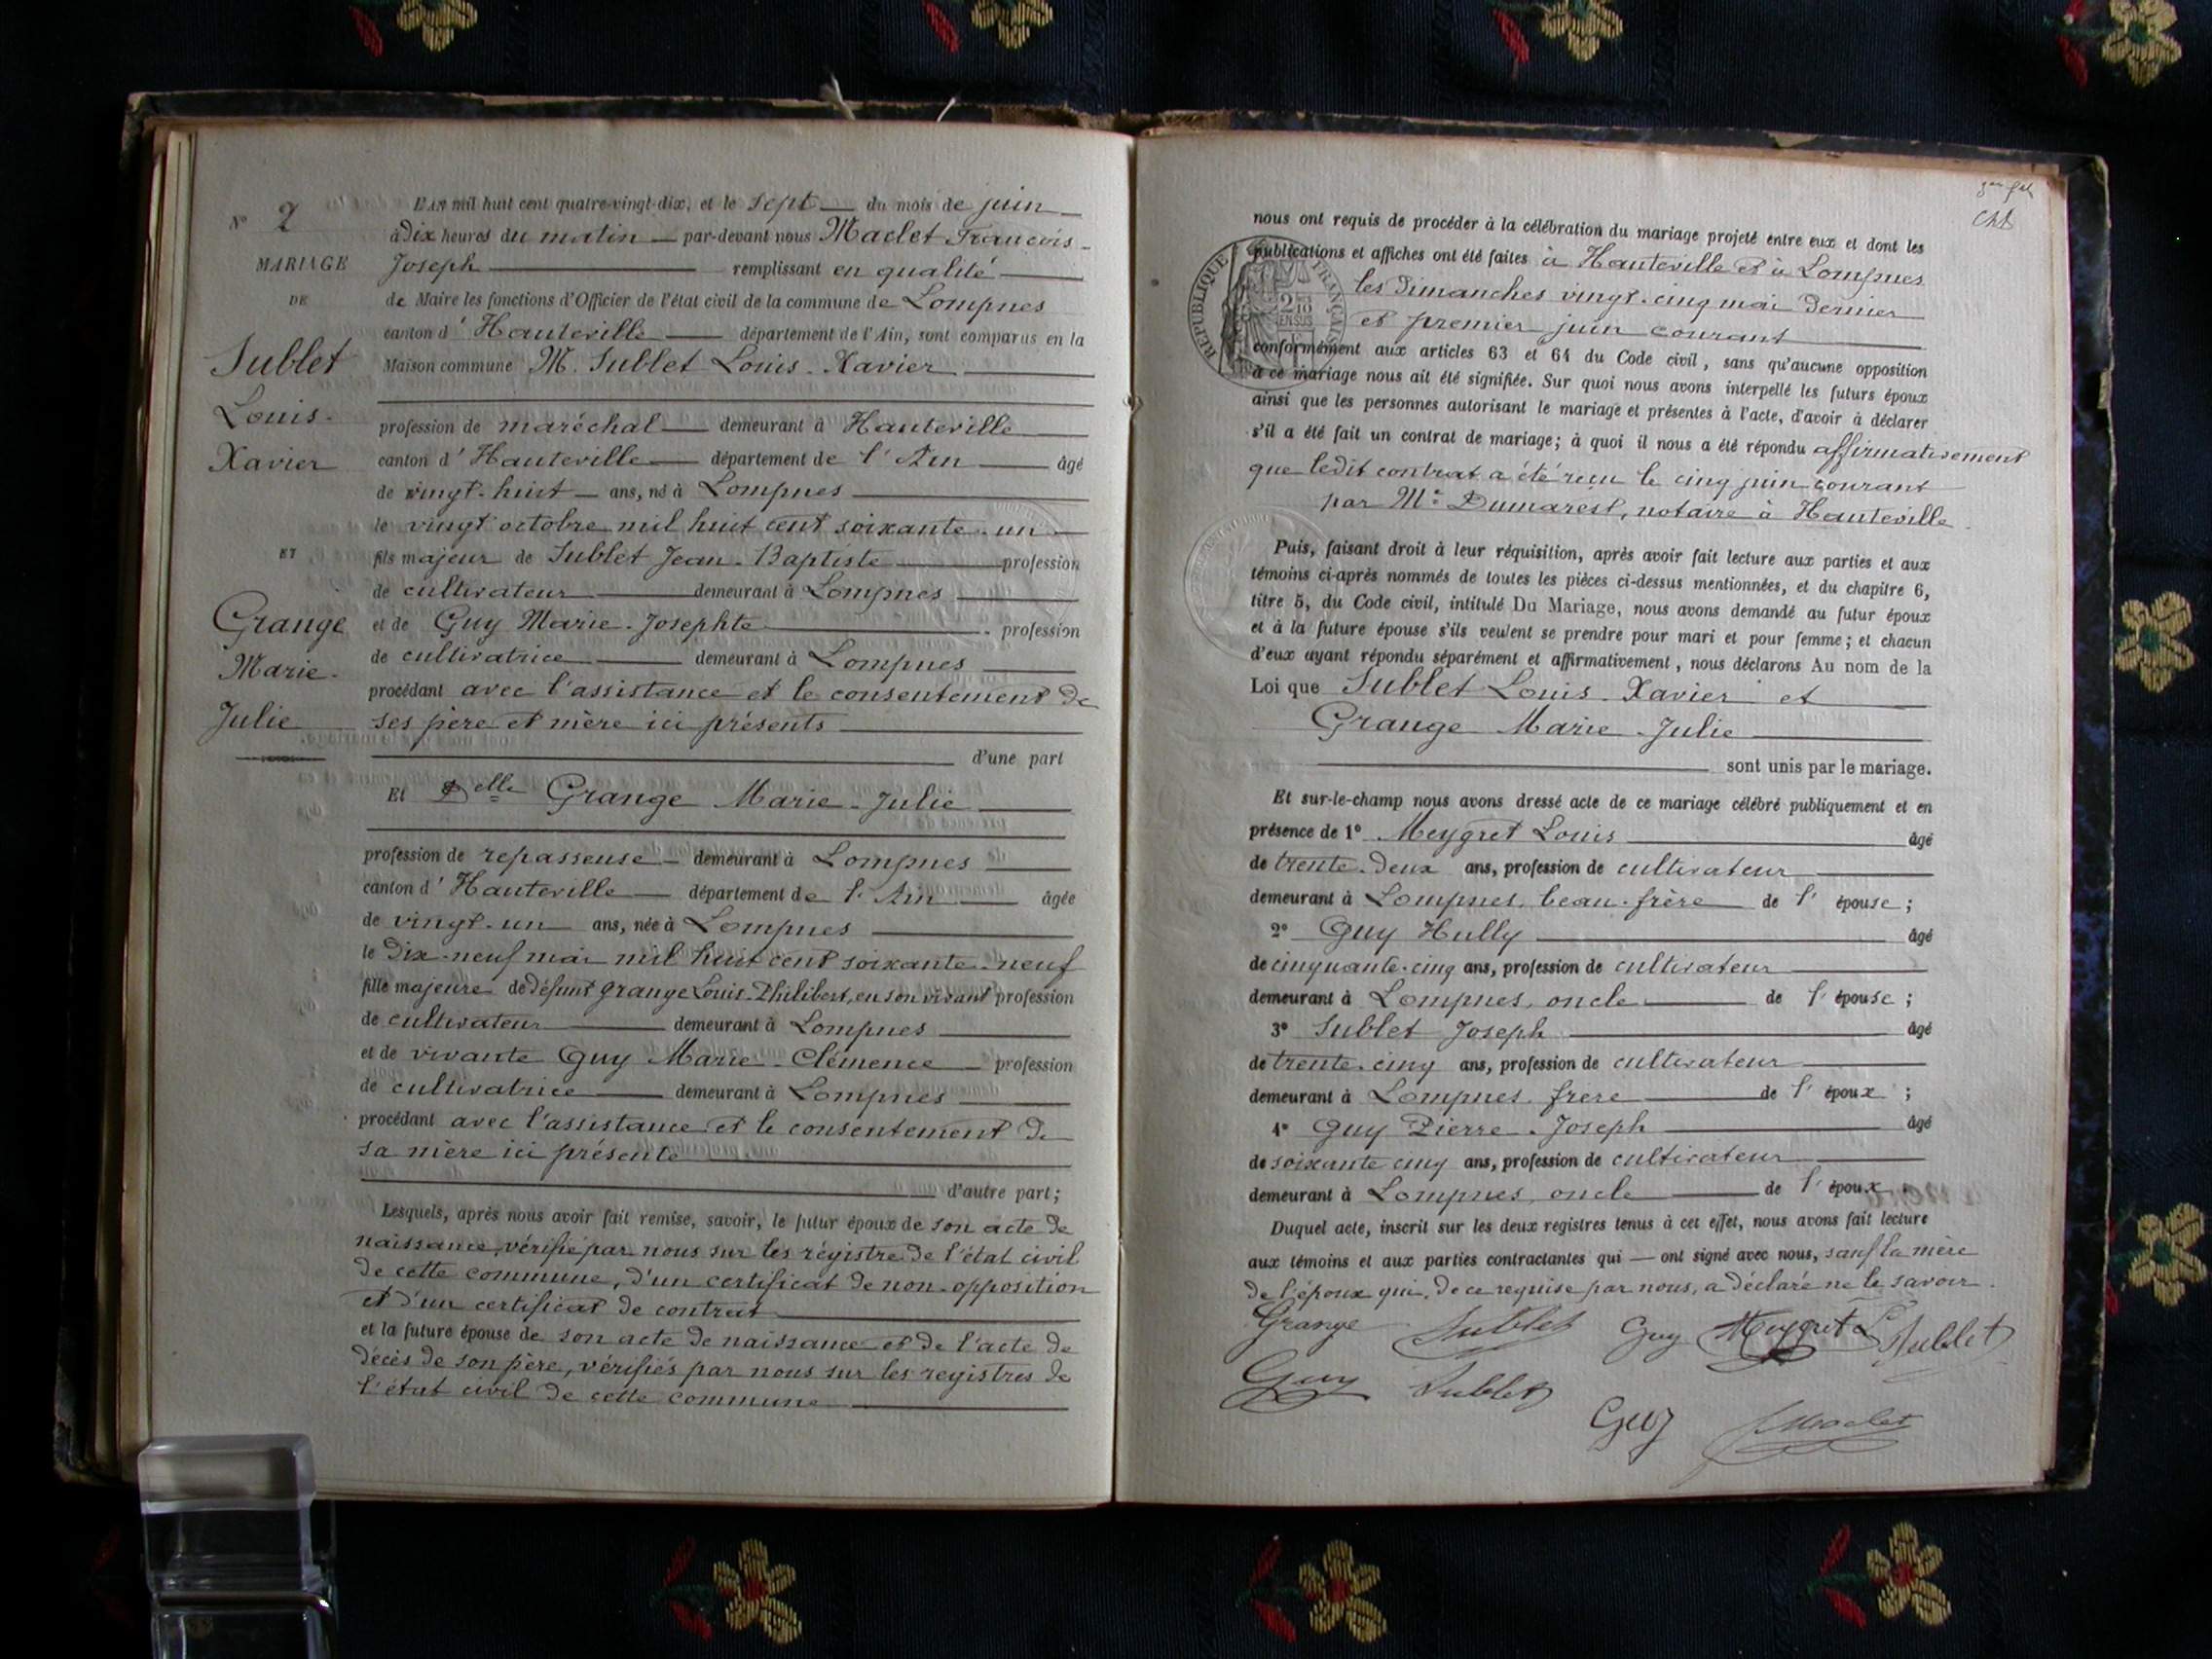 N° 2
MARIAGE
DE
Sublet
Louis-
Xavier
ET
Grange
Marie-
Julie
L'AN mil huit cent quatre-vingt-dix, et le sept du mois de juin
à dix heures du matin par-devant nous Maclet François-
Joseph remplissant en qualité
de Maire les fonctions d'Officier de l'état civil de la commune de Lompnes
canton d'Hauteville département de l'Ain, sont comparus en la
Maison commune M. Sublet Louis-Xavier
profession de maréchal demeurant à Hauteville
canton d'Hauteville département de l'Ain âgé
de vingt-huit ans, né à Lompnes
le vingt octobre mil huit cent soixante-un
fils majeur de Sublet Jean-Baptiste profession
de cultivateur demeurant à Lompnes
et de Guy Marie-Josephte profession
de cultivatrice demeurant à Lompnes
procédant avec l'assistance et le consentement de
ses père et mère ici présents
d'une part
Et Delle Grange Marie-Julie
profession de repasseuse demeurant à Lompnes
canton d'Hauteville département de l'Ain âgée
de vingt-un ans, née à Lompnes
le dix-neuf mai mil huit cent soixante-neuf
fille majeure de défunt Grange Louis-Philibert, en son vivant profession
de cultivateur demeurant à Lompnes
et de vivante Guy Marie-Clémence profession
de cultivatrice demeurant à Lompnes
procédant avec l'assistance et le consentement de
sa mère ici présente
d'autre part;
Lesquels, après nous avoir fait remise, savoir, le futur époux de son acte de
naissance, vérifié par nous sur les régistre de l'état civil
de cette commune, d'un certificat de non-opposition
et d'un certificat de contrat
et la future épouse de son acte de naissance et de l'acte de
décès de son père, vérifiés par nous sur les registres de
l'état civil de cette commune
nous ont requis de procéder à la célébration du mariage projeté entre eux et dont les
publications et affiches ont été faites à Hauteville et à Lompnes
les dimanches vingt-cinq mai dernier
et premier juin courant
conformément aux articles 63 et 64 du Code civil, sans qu'aucune opposition
à ce mariage nous ait été signifiée. Sur quoi nous avons interpellé les futurs époux
ainsi que les personnes autorisant le mariage et présentes à l'acte, d'avoir à déclarer
s'il a été fait un contrat de mariage; à quoi il nous a été répondu affirmativement
que ledit contrat a été reçu le cinq juin courant
par Me Dumarest, notaire à Hauteville.
Puis, faisant droit à leur réquisition, après avoir fait lecture aux parties et aux
témoins ci-après nommés de toutes les pièces ci-dessus mentionnées, et du chapitre 6,
titre 5, du Code civil, intitulé Du Mariage, nous avons demandé au futur époux
et à la future épouse s'ils veulent se prendre pour mari et pour femme; et chacun
d'eux ayant répondu séparément et affirmativement, nous déclarons Au nom de la
Loi que Sublet Louis-Xavier et
Grange Marie-Julie
sont unis par le mariage.
Et sur-le-champ nous avons dressé acte de ce mariage célébré publiquement et en
présence de 1° Meygret Louis âgé
de trente-deux ans, profession de cultivateur
demeurant à Lompnes, beau-frère de l'épouse;
2° Guy Hully âgé
de cinquante-cinq ans, profession de cultivateur
demeurant à Lompnes, oncle de l'épouse;
3° Sublet Joseph âgé
de trente-cinq ans, profession de cultivateur
demeurant à Lompnes, frère de l'époux;
4° Guy Pierre-Joseph âgé
de soixante cinq ans, profession de cultivateur
demeurant à Lompnes, oncle de l'époux.
Duquel acte, inscrit sur les deux registres tenus à cet effet, nous avons fait lecture
aux témoins et aux parties contractantes qui — ont signé avec nous, sauf la mère
de l'époux qui, de ce requise par nous, a déclaré ne le savoir.
Grange Sublet Guy Meygret L Sublet
Guy Sublet
Guy Maclet
RÉPUBLIQUE FRANÇAISE